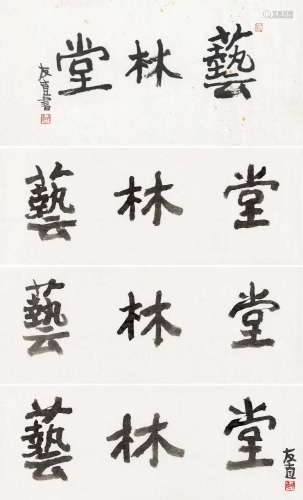 藝林堂
友直書
藝林堂
藝林堂
藝林堂
友直